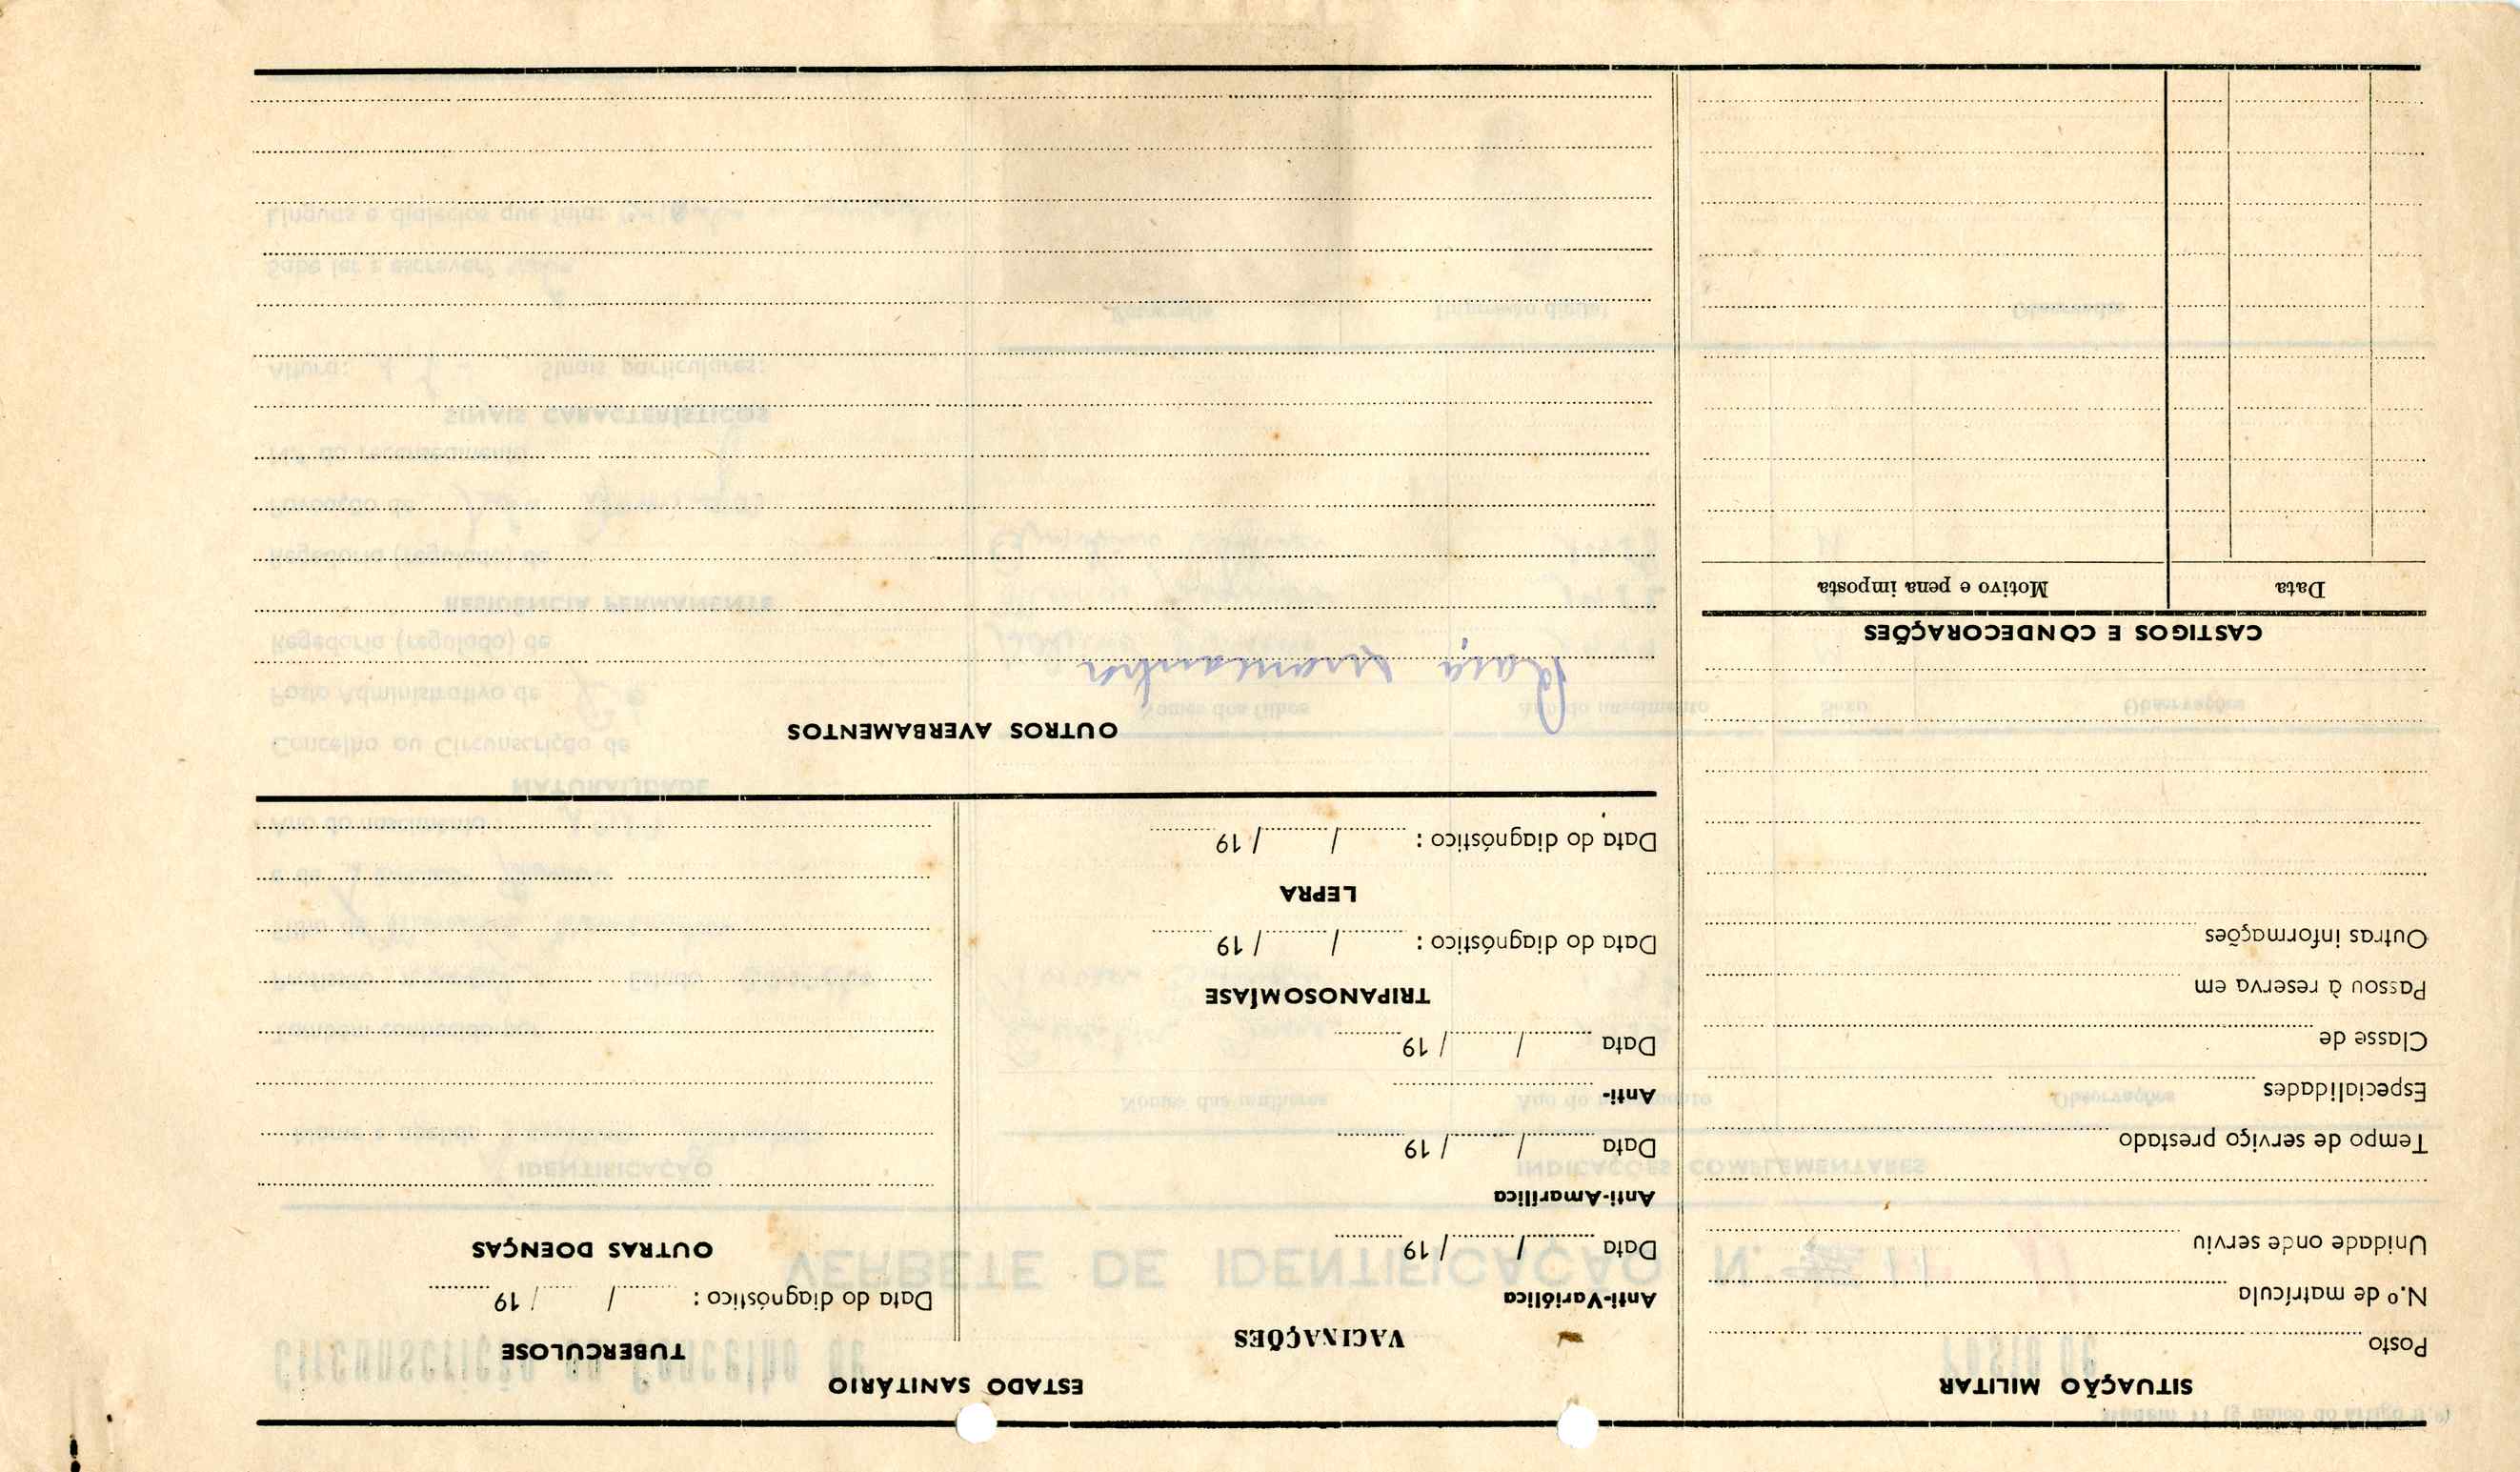 SITUAÇÃO MILITAR
Posto
N.º de matrícula
Unidade onde serviu
Tempo de serviço prestado
Especialidades
Classe de
Passou à reserva em
Outras informações
CASTIGOS E CONDECORAÇÕES
Data Motivo e pena imposta
ESTADO SANITÁRIO
VACINAÇÕES
Anti-Variólica
Data / / 19
Anti-Amarílica
Data / / 19
Anti-
Data / / 19
TRIPANOSOMÍASE
Data do diagnóstico : / / 19
LEPRA
Data do diagnóstico : / / 19
TUBERCULOSE
Data do diagnóstico : / / 19
OUTRAS DOENÇAS
OUTROS AVERBAMENTOS
Raça